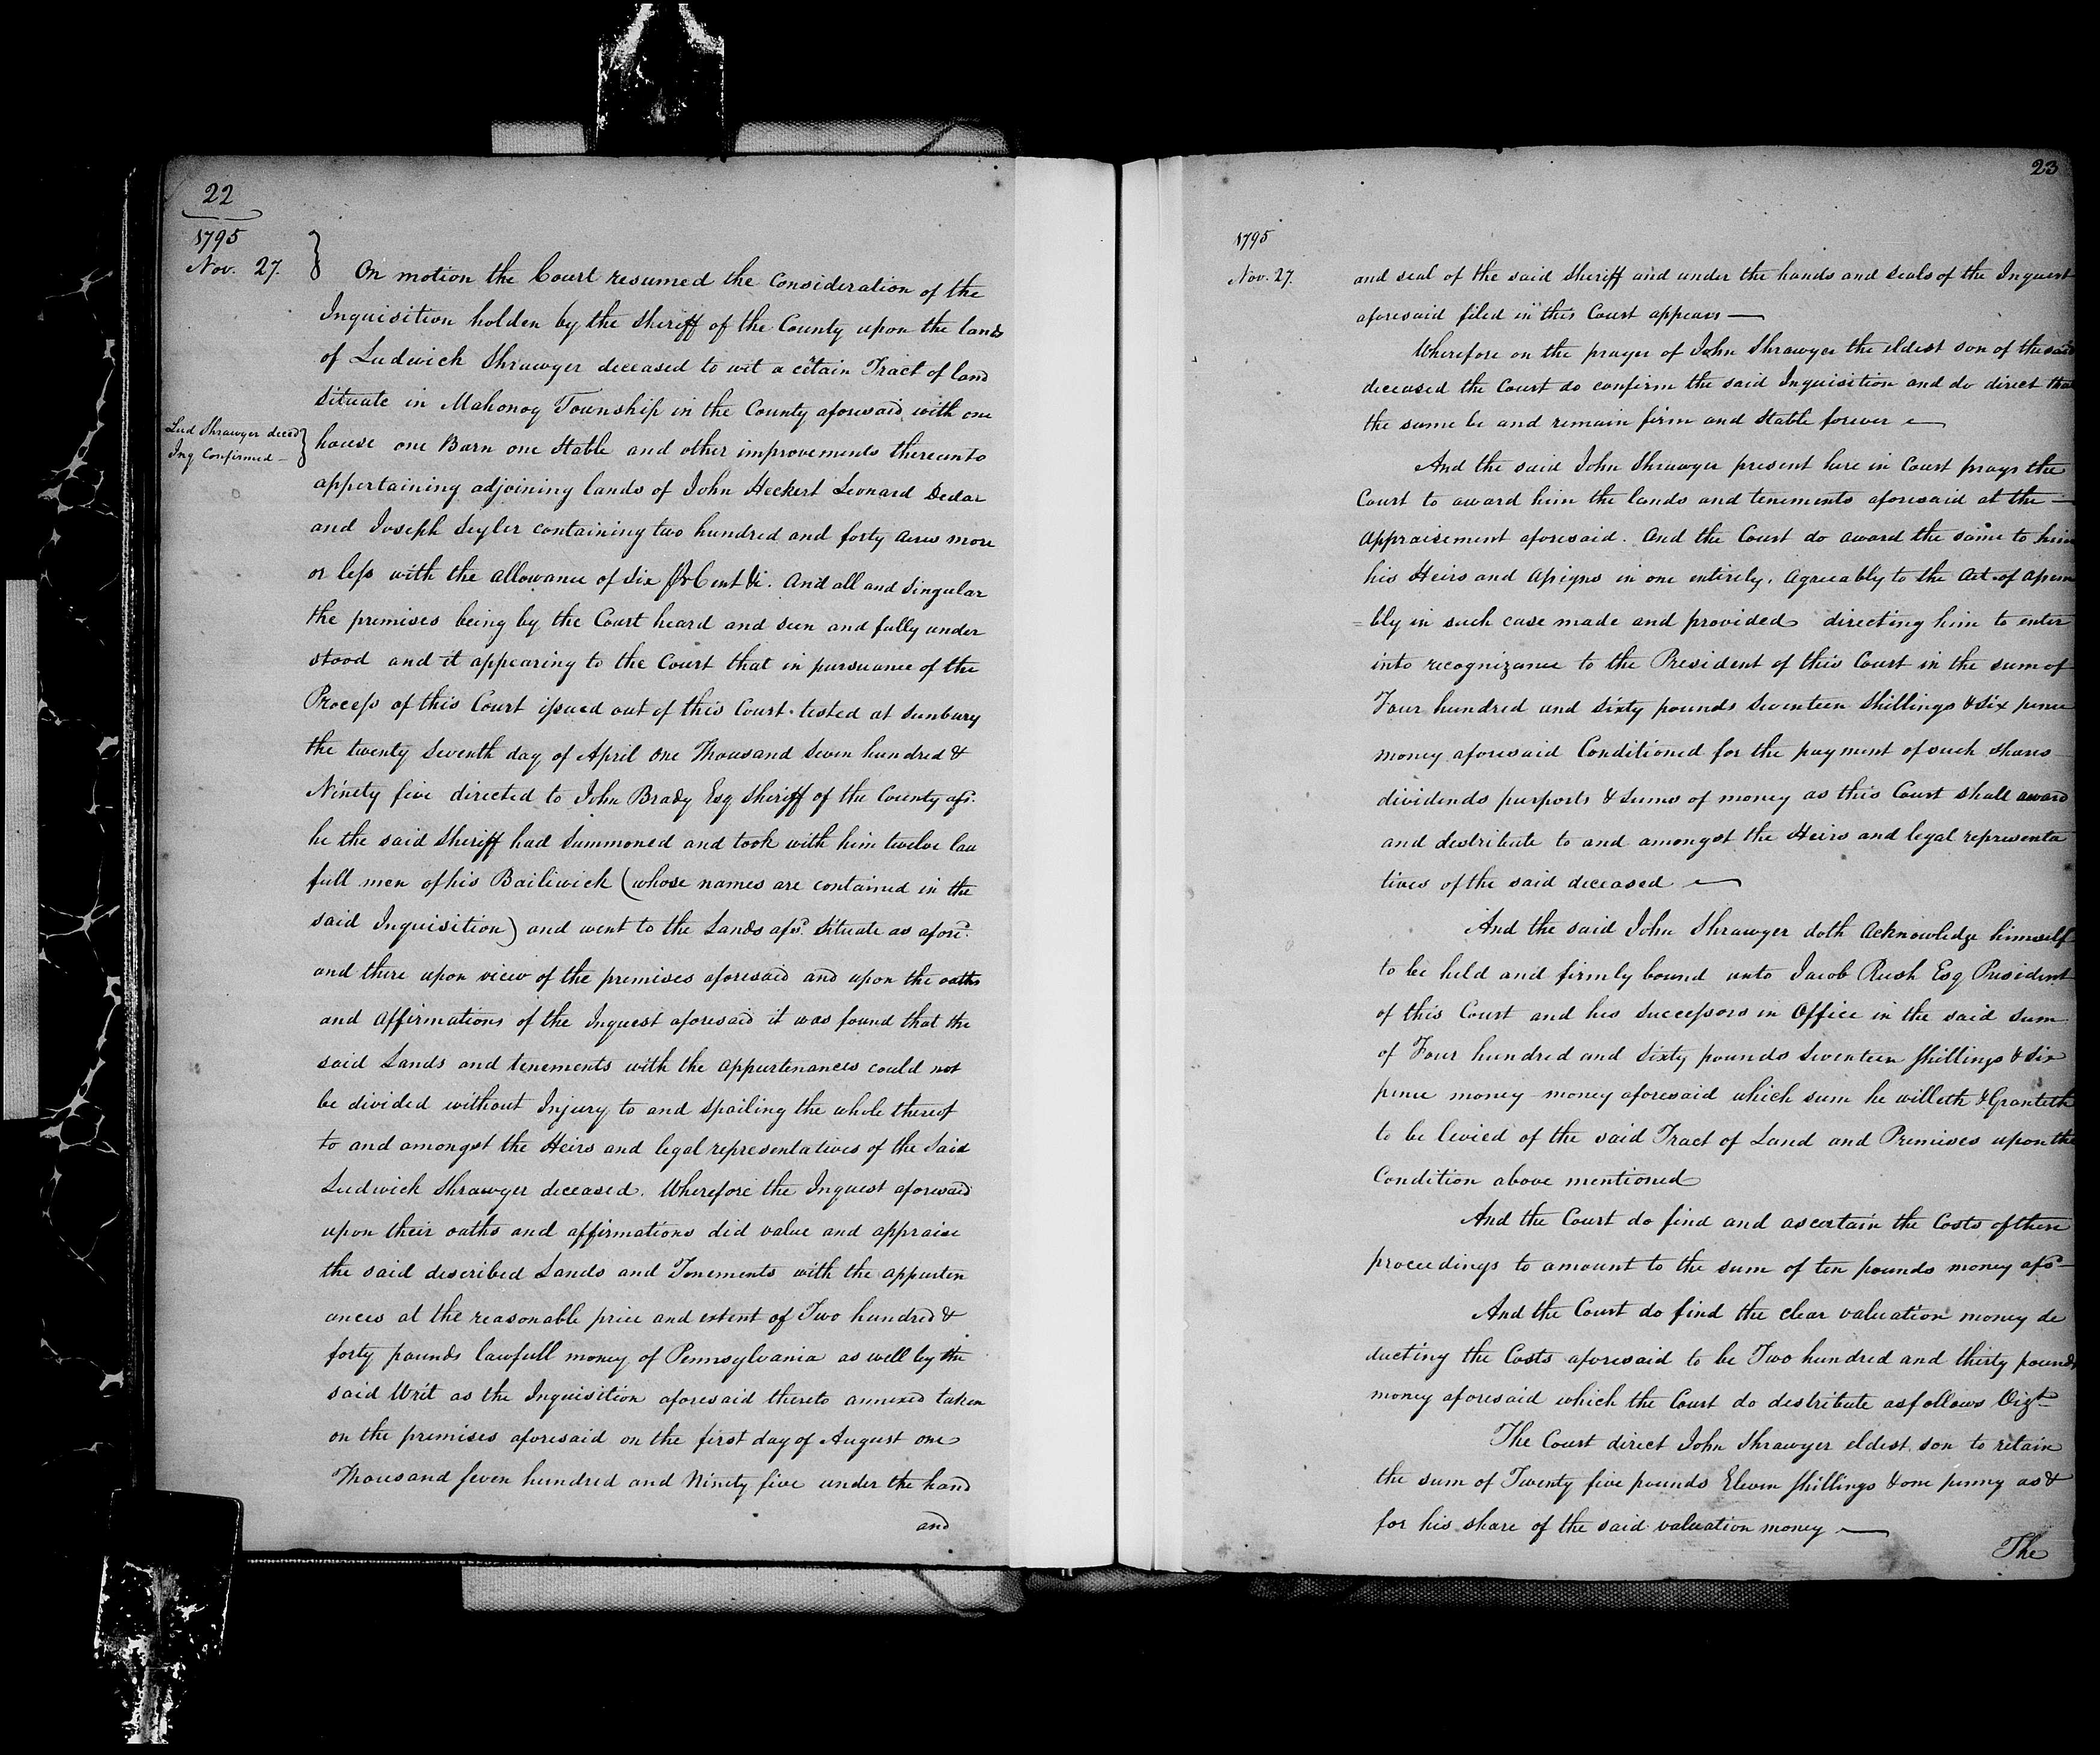 22
1795
Nov. 27.
On motion the Court resumed the Consideration of the
Inquisition holden by the Sheriff of the County upon the lands
of Ludwick Shrawyer deceased to wit a certain Tract of land
Situate in Mahonoy Township in the County aforesaid with one
Lud Shrawyer decd
Inq Confirmed —
house one Barn one Stable and other improvements thereunto
appertaining adjoining lands of John Heckert Leonard Dedar
and Joseph Seyler containing two hundred and forty acres more
or less with the allowance of Six Pr Cent &c. And all and Singular
the premises being by the Court heard and seen and fully under
stood and it appearing to the Court that in pursuance of the
Process of this Court issued out of this Court tested at Sunbury
the twenty Seventh day of April one Thousand Seven hundred &
Ninety five directed to John Brady Esq Sheriff of the County afs.
he the said Sheriff had Summoned and took with him twelve law
full men of his Bailiwick (whose names are contained in the
said Inquisition) and went to the Lands afsd. Situate as afored.
and there upon view of the premises aforesaid and upon the oaths
and Affirmations of the Inquest aforesaid it was found that the
said Lands and tenements with the appurtenances could not
be divided without Injury to and Spoiling the whole thereof
to and amongst the Heirs and legal representatives of the Said
Ludwick Shrawyer deceased. Wherefore the Inquest aforesaid
upon their oaths and affirmations did value and appraise
the said described Lands and Tenements with the appurten
ances at the reasonable price and extent of Two hundred &
forty pounds lawfull money of Pennsylvania as well by the
said Writ as the Inquisition aforesaid thereto annexed taken
on the premises aforesaid on the first day of August one
Thousand seven hundred and Ninety five under the hand
and
23
1795
Nov. 27.
and seal of the said Sheriff and under the hands and Seals of the Inquest
aforesaid filed in this Court appears —
Wherefore on the prayer of John Shrawyer the eldest son of the said
deceased the Court do confirm the said Inquisition and do direct that
the same be and remain firm and Stable forever —
And the said John Shrawyer present here in Court prays the
Court to award him the lands and tenements aforesaid at the —
appraisement aforesaid. And the Court do award the same to him
his Heirs and Assigns in one entirely. Agreeably to the Act of Assem
=bly in such case made and provided directing him to enter
into recognizance to the President of this Court in the sum of
Four hundred and Sixty pounds Seventeen Shillings & Six pence
money aforesaid Conditioned for the payment of such shares
dividends purports & Sums of money as this Court shall award
and destribute to and amongst the Heirs and legal representa
tives of the said deceased —
And the said John Shrawyer doth Acknowledge himself
to be held and firmly bound unto Jacob Rush Esq President
of this Court and his Successors in Office in the said Sum
of Four hundred and Sixty pounds Seventeen Shillings & Six
pence money money aforesaid which sum he willeth & Granteth
to be levied of the said Tract of Land and Premises upon the
Condition above mentioned
And the Court do find and ascertain the Costs of these
proceedings to amount to the sum of ten pounds money afsd —
And the Court do find the clear valuation money de
ducting the Costs aforesaid to be Two hundred and thirty pounds
money aforesaid which the Court do destribute as follows Vizt
The Court direct John Shrawyer eldest son to retain
the sum of Twenty five pounds Eleven Shillings & one penny as &
for his share of the said valuation money —
The